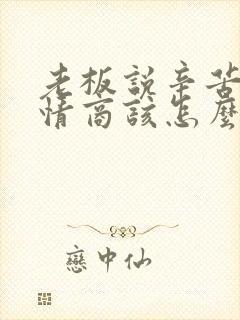 老板說辛苦
情商該怎麼
戀中仙